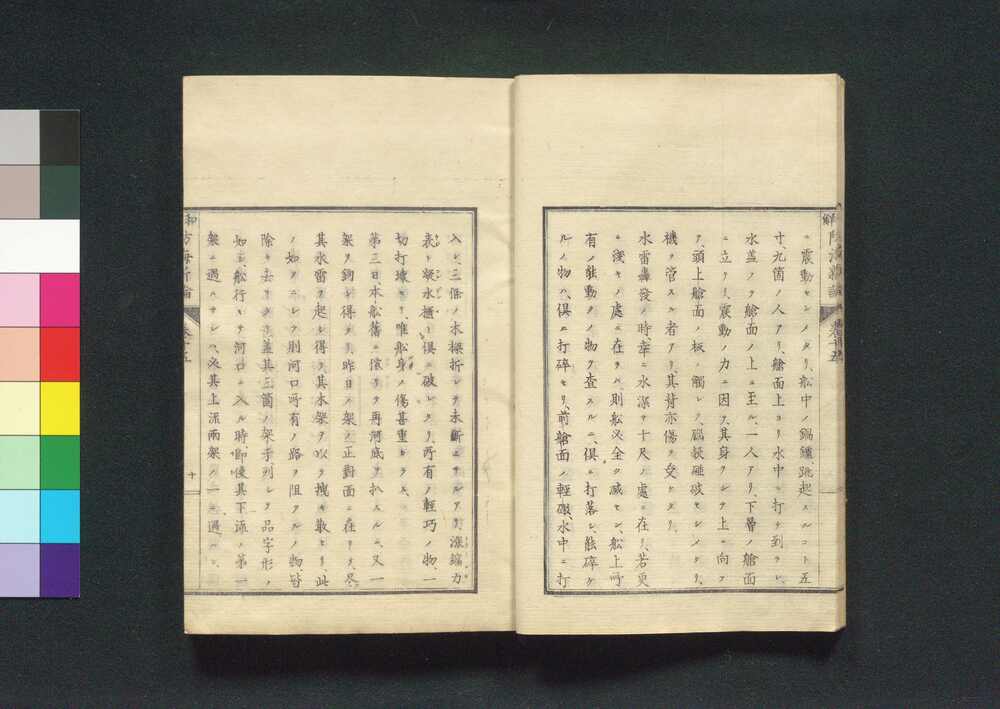 ニ震動セシメタリ、舩中ノ鍋鑪跳起スルコト五
寸、九箇ノ人アリ、艙面上ヨリ水中ニ打チ到ラレ、
水蓋ノ艙面ノ上ニ至ル、一人アリ、下層ノ艙面
ニ立リ、震動ノ力ニ因テ、其身ヲシテ上ニ向テ
頭上艙面ノ板ニ觸レシ、腦殻碰破セシメタリ、
機ヲ管スル者アリ、其背亦傷ヲ受ケタリ、
水雷轟發ノ時幸ニ水深サ十尺ノ處ニ在リ、若更
ニ淺キノ處ニ在ラハ則舩必全ク滅セン、舩上所
有ノ能動クノ物ヲ查スルニ、俱ニ打落シ能碎ケ
ルノ物ハ、俱ニ打碎セリ、前艙面ノ輕礮、水中ニ打
入シ、三條ノ木檪折レテ未斷エサルアリ、漲縮力
表ト凝水櫃ト俱ニ破レタリ、所有ノ輕巧ノ物、一
切打壊セリ、唯舩身ノ傷甚重カラス、
第三日、本舩舊ニ依リテ再河底ヲ扒スルニ、又一
架ヲ鉤シ得タリ、昨日ノ架ノ正對面ニ在リテ、尽
其水雷ヲ起シ得テ、其木架ヲ以テ拽キ散セリ、此
ノ如クニシテ則河口所有ノ路ヲ阻クルノ物、皆
除キ去リタリ、蓋其三箇ノ架李列シテ品字形ノ
如シ、舩行キテ河口ニ入ル時、即使其下流ノ第一
架ニ過ハサレハ、必其上流兩架ノ一ニ過ハン、
防海新論
十